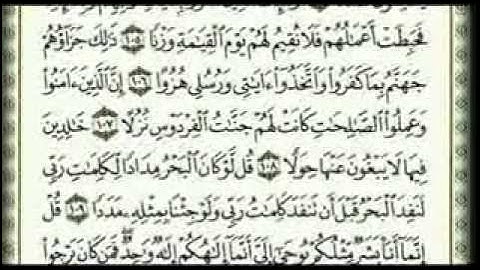 فَحَبِطَتْ أَعْمَٰلُهُمْ فَلَا نُقِيمُ لَهُمْ يَوْمَ ٱلْقِيَٰمَةِ وَزْنًا ١٠٥ ذَٰلِكَ جَزَآؤُهُمْ
جَهَنَّمُ بِمَا كَفَرُوا۟ وَٱتَّخَذُوٓا۟ ءَايَٰتِى وَرُسُلِى هُزُوًا ١٠٦ إِنَّ ٱلَّذِينَ ءَامَنُوا۟
وَعَمِلُوا۟ ٱلصَّٰلِحَٰتِ كَانَتْ لَهُمْ جَنَّٰتُ ٱلْفِرْدَوْسِ نُزُلًا ١٠٧ خَٰلِدِينَ
فِيهَا لَا يَبْغُونَ عَنْهَا حِوَلًا ١٠٨ قُل لَّوْ كَانَ ٱلْبَحْرُ مِدَادًا لِّكَلِمَٰتِ رَبِّى
لَنَفِدَ ٱلْبَحْرُ قَبْلَ أَن تَنفَدَ كَلِمَٰتُ رَبِّى وَلَوْ جِئْنَا بِمِثْلِهِۦ مَدَدًا ١٠٩ قُلْ
إِنَّمَآ أَنَا۠ بَشَرٌ مِّثْلُكُمْ يُوحَىٰٓ إِلَىَّ أَنَّمَآ إِلَٰهُكُمْ إِلَٰهٌ وَٰحِدٌ ۖ فَمَن كَانَ يَرْجُوا۟